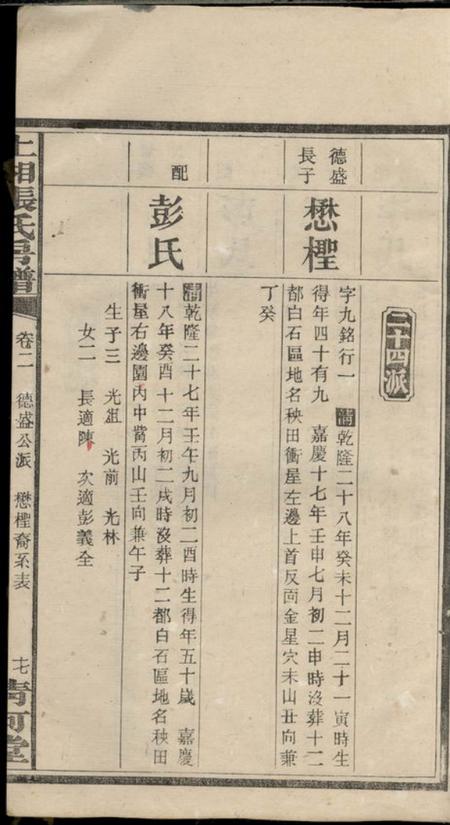 二十四派
德盛
長子
懋樫
字九銘行一 清乾隆二十八年癸未十二月二十一寅時生
得年四十有九 嘉慶十七年壬申七月初二申時沒葬十二
都白石區地名秧田衝屋左邊上首反向金星穴未山丑向兼
丁癸
配
彭氏
清乾隆二十七年壬午九月初二酉時生得年五十歲 嘉慶
十八年癸酉十二月初二戌時沒葬十二都白石區地名秧田
衝屋右邊園內中嘴丙山壬向兼午子
生子三 光俎 光前 光林
女二 長適陳 次適彭義全
上湘張氏房譜
卷二 德盛公派 懋樫裔系表
十七
清河堂